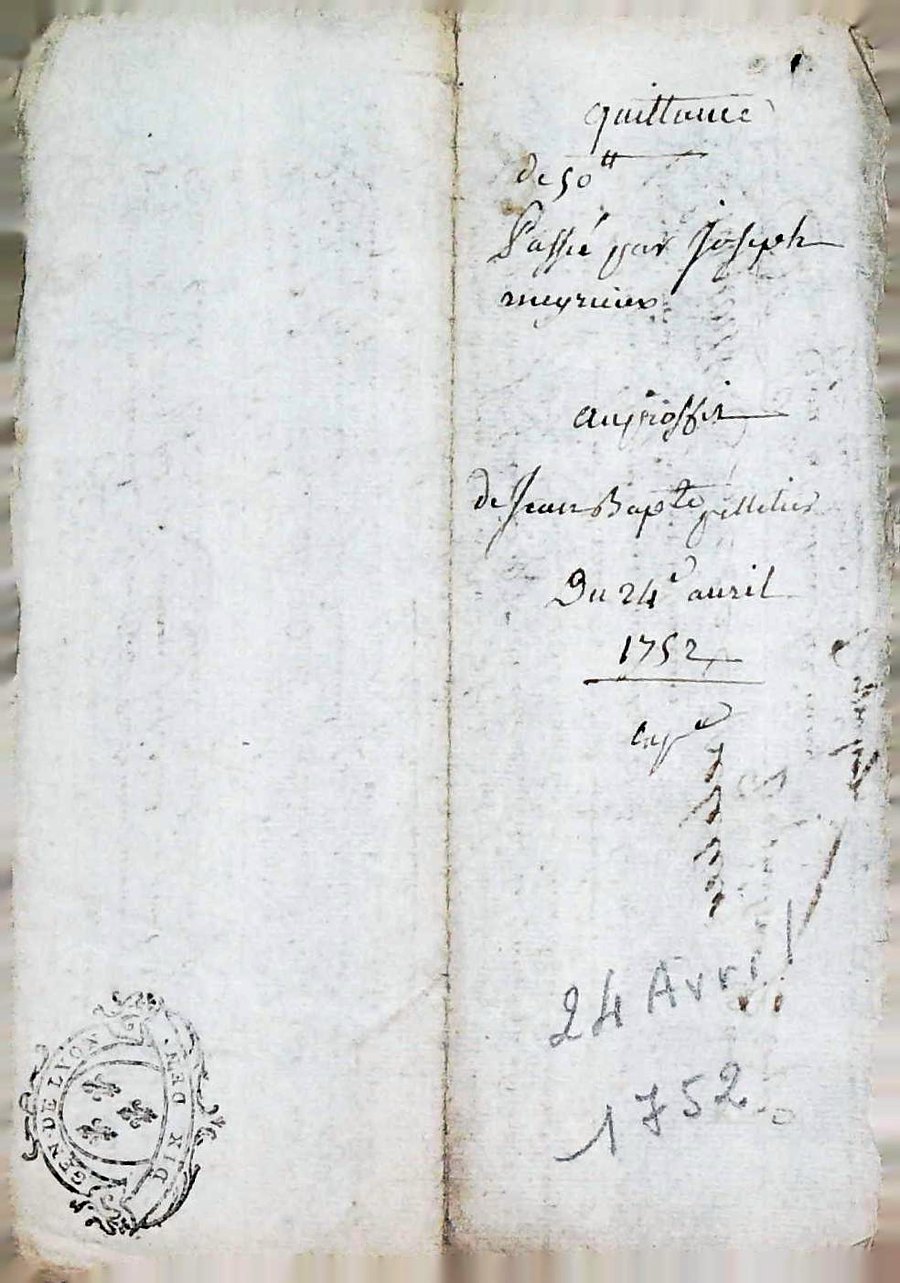 quittance
de 50 tt
Passé par Joseph
meynieux
au proffit
de Jean Bapte pelletier
Du 24e auril
1752
24 Avril
1752
GEN·DE LYON
DIX DEN.